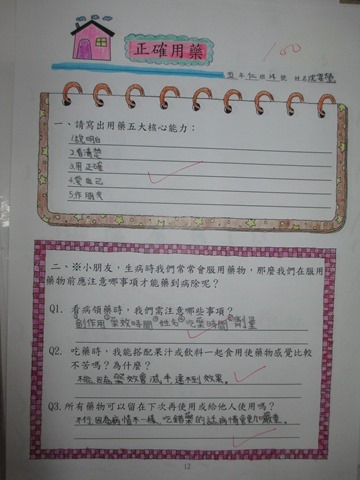 正確用藥
100
年仁班 號 姓名
一、請寫出用藥五大核心能力：
1.說明白
2.看清楚
3.用正確
4.愛自己
5.作朋友
二、※小朋友，生病時我們常常會服用藥物，那麼我們在服用
藥物前應注意哪事項才能藥到病除呢？
Q1. 看病領藥時，我們需注意哪些事項？
①副作用②藥效時間③姓名④吃藥時間⑤劑量
Q2. 吃藥時，我能搭配果汁或飲料一起食用使藥物感覺比較
不苦嗎？為什麼？
不能，因為藥效會減半達不到效果。
Q3.所有藥物可以留在下次再使用或給他人使用嗎？
不行，因為病情不一樣，吃錯藥的話病情會更加嚴重。
12